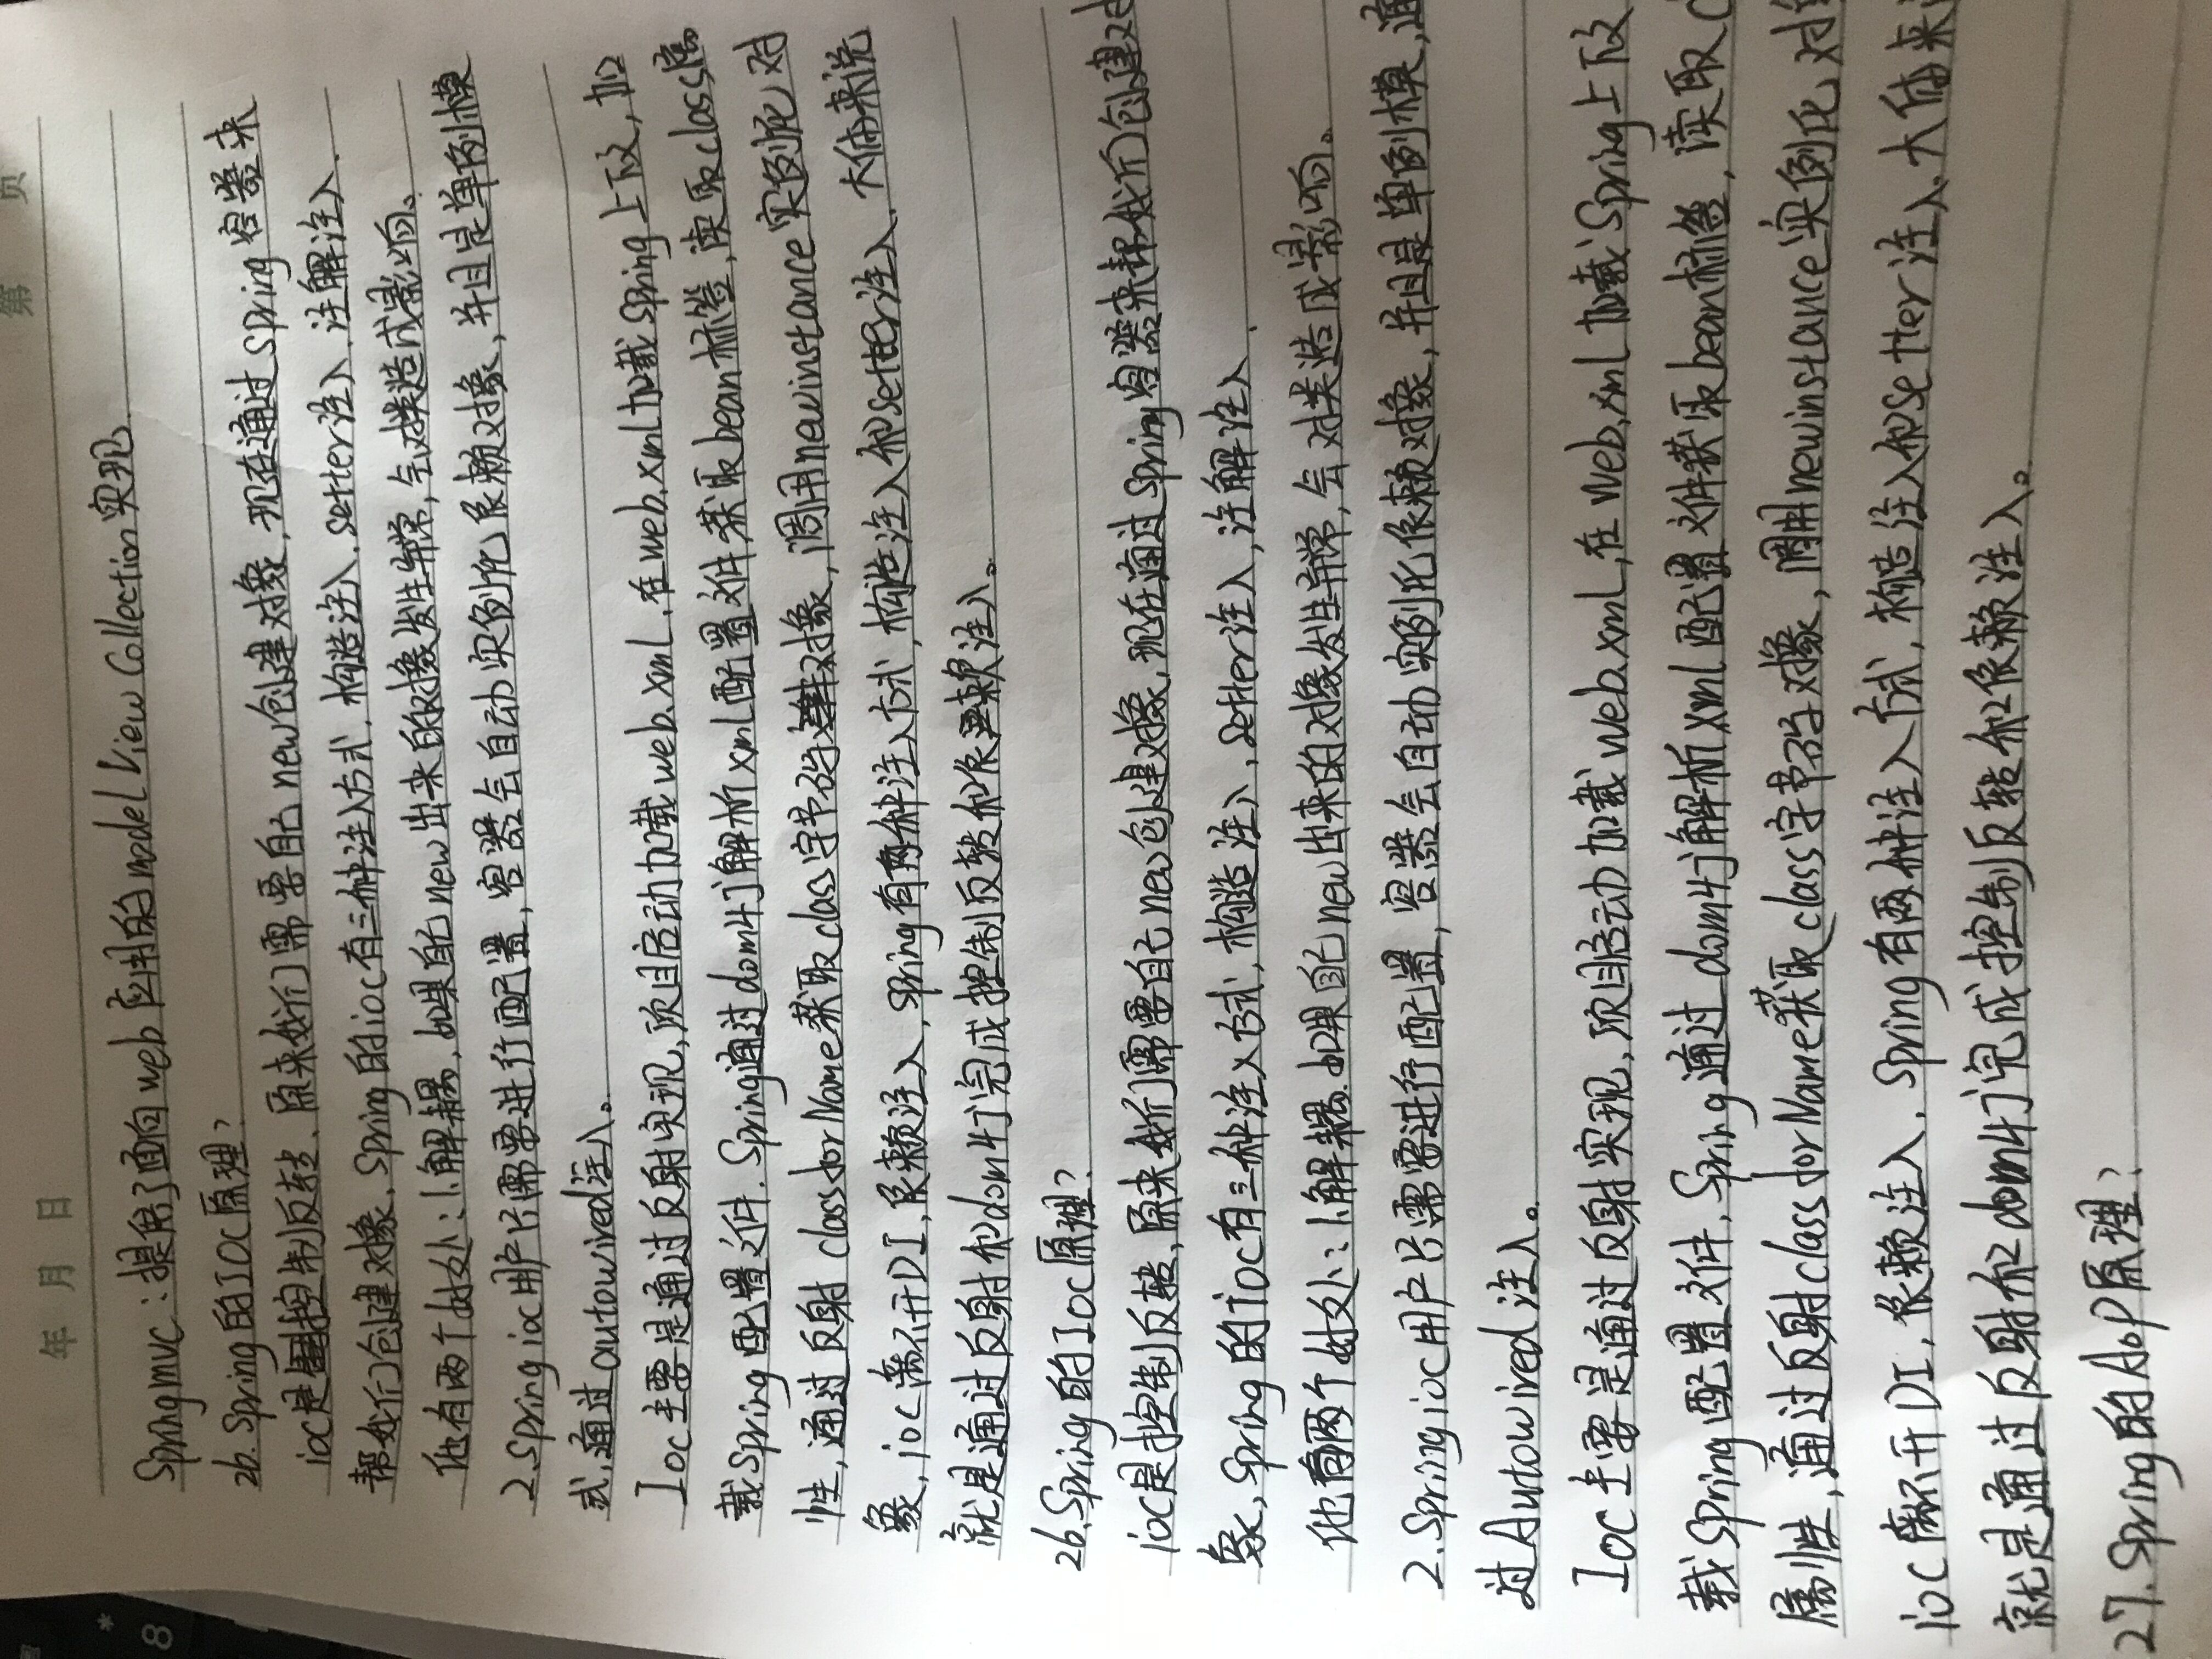 年 月 日
第 页
Springmvc：提供了面向web应用的model View Collection实现.
26. Spring的IOC原理？
ioc是控制反转、原来我们需要自己new创建对象，现在通过spring容器来
帮我们创建对象，Spring的ioc有三种注入方式，构造注入，setter注入，注解注入.
他有两个好处：1.解耦，如果自己new出来的对象发生异常，会对类造成影响。
2.spring ioc用户只需要进行配置，容器会自动实例化依赖对象，并且是单例模
式，通过autowired注入。
Ioc主要是通过反射实现，项目启动加载web.xml，在web.xml加载spring上下文，加
载Spring配置文件. Spring通过dom4j解析xml配置文件获取bean标签，读取class属
性，通过反射classforName获取class字节码对象，调用newinstance实例化对
象，ioc离不开DI，依赖注入，spring有两种注入方式，构造注入和setter注入，大体来说
就是通过反射和dom4j完成控制反转和依赖注入。
26.Spring的Ioc原理？
ioc是控制反转，原来我们需要自己new创建对象，现在通过spring容器来帮我们创建对
象，spring的ioc有三种注入方式，构造注入，setter注入，注解注入，
他有两个好处：1.解耦.如果自己new出来的对象发生异常，会对类造成影响。
2.Spring ioc用户只需要进行配置，容器会自动实例化依赖对象，并且是单例模，通
过Autowired注入。
Ioc主要是通过反射实现，项目启动加载web.xml，在web.xml加载Spring上下文
载Spring配置文件，Spring通过dom4j解析xml配置文件获取bean标签，读取c
属性，通过反射classforName获取class字节码对象，调用newinstance实例化对象
ioc离不开DI，依赖注入，spring有两种注入方式，构造注入和setter注入，大体来
就是通过反射和dom4j完成控制反转和依赖注入。
27.Spring的AoP原理？